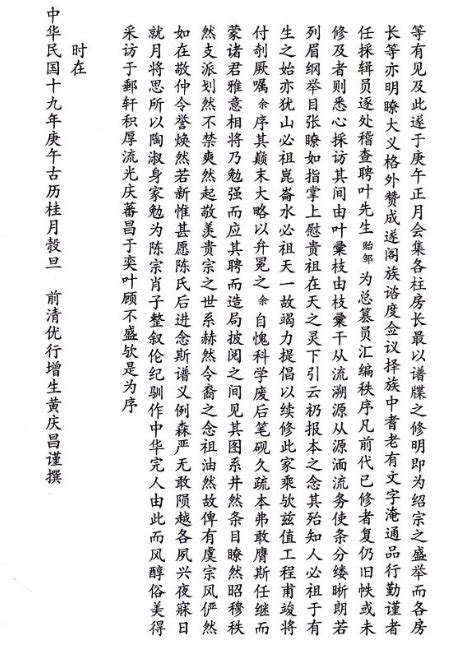 等有见及此遂于庚午正月会集各柱房长最以谱牒之修明即为绍宗之盛举而各房
长等亦明瞭大义格外赞成遂阁族谘度佥议择族中耆老有文字淹通品行勤谨者
任採辑员逐处稽查聘叶先生贻邹为总篡员汇编秩序凡前代已修者复仍旧帙或未
修及者则悉心採访其间由叶彚枝由枝彚干从流溯源从源沔流务使条分缕晰朗若
列眉纲举目张瞭如指掌上慰贵祖在天之灵下引云礽报本之念其殆知人必祖于有
生之始亦犹山必祖崑崙水必祖天一故竭力提倡以续修此家乘欤兹值工程甫竣将
付剞厥嘱余序其巅末大略以弁冕之余自愧科学废后笔砚久疏本弗敢膺斯任继而
蒙诸君雅意相将乃勉强而应其聘而造局披阅之间见其图系井然条目瞭然昭穆秩
然支派划然不禁爽然起敬美贵宗之世系赫然令裔之念祖油然故俾有虞宗风俨然
如在敬仲令誉焕然若新惟甚愿陈氏后进念斯谱义例森严无敢陨越各夙兴夜寐日
就月将思所以陶淑身家勉为陈宗肖子整叙伦纪驯作中华完人由此而风醇俗美得
采访于輶轩积厚流光庆蕃昌于奕叶顾不盛欤是为序
时在
中华民国十九年庚午古历桂月毂旦 前清优行增生黄庆昌谨撰